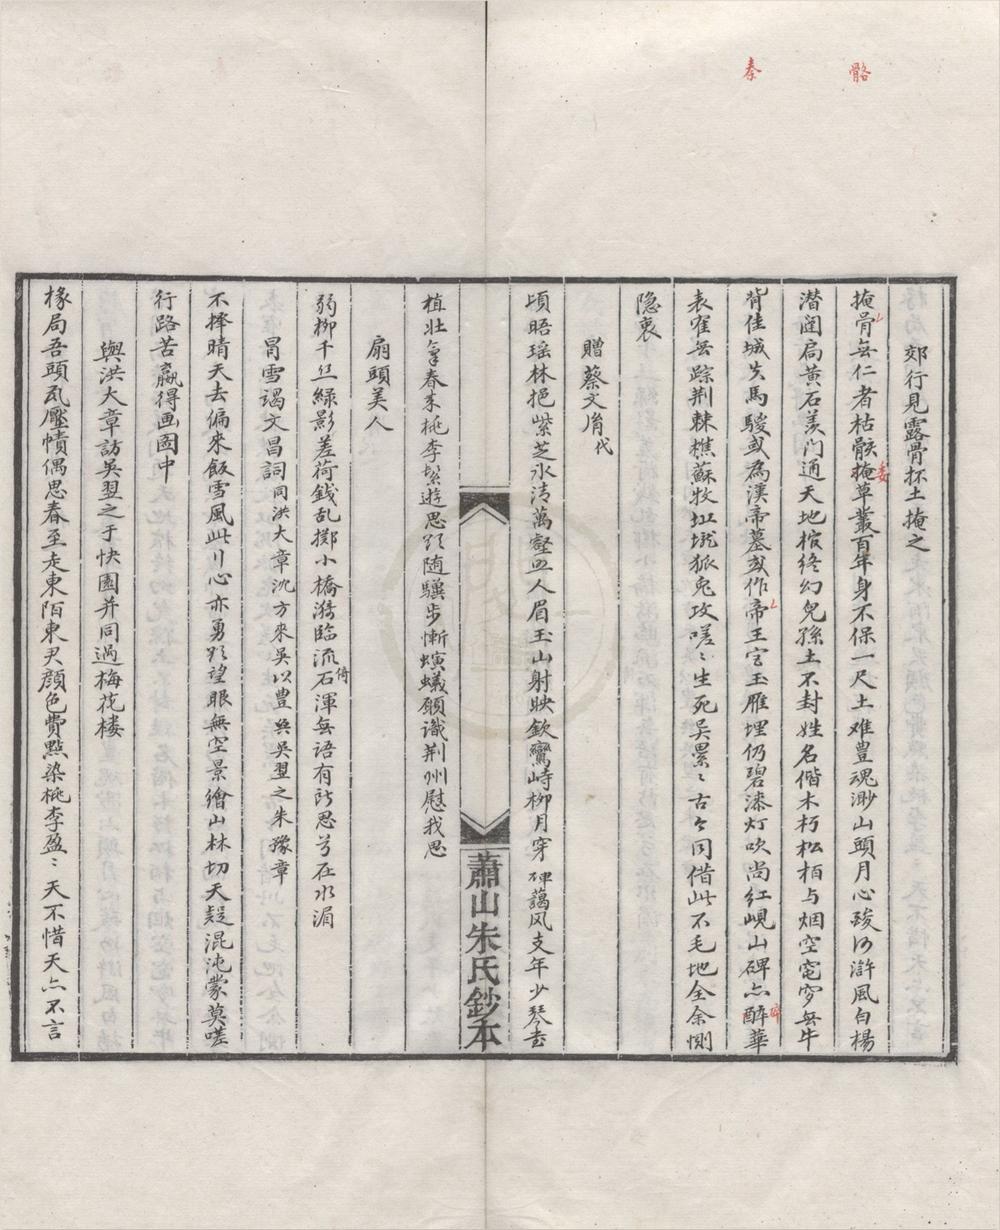 骼
秦
郊行見露骨抔土掩之
掩骨無仁者枯骸掩草叢百年身不保一尺土难豊魂渺山頭月心踆河滸風白楊
委
潜閟扃黄石羡门通天地棺终幻兒孫土不封姓名偕木朽松柏与烟空窀穸無牛
背佳城失馬騣或為漢帝墓或作帝王宫玉雁埋仍碧漆灯吹尚红峴山碑亦醉華
碎
表奞無踪荆棘樵蘇牧坵壠狐兔攻嗟〻生死吴累〻古今同借此不毛地全余惻
隐衷
贈蔡文胤代
頃晤瑶林挹紫芝冰清萬壑照人眉玉山射映欽鸞峙栁月穿碑藹风支年少琴台
植壮氣春來桃李繁遊思欵随驥步慚螾蟻願識荆州慰我思
扇頭美人
弱栁千丝緑影差荷錢乱擲小橋漪臨流石渾無语有所思兮在水湄
倚
冒雪謁文昌詞同洪大章沈方來吳以豊吳吳翌之朱豫章
不擇晴天去偏來飯雪風此川心亦勇欵望眼無空景繪山林切天疑混沌蒙莫嗟
行路苦赢得画图中
與洪大章訪吳翌之于快園并同過梅花楼
椽局吾頭瓦壓憒偶思春至走東陌東尹顔色費點染桃李盈〻天不惜天亦不言
蕭山朱氏鈔本